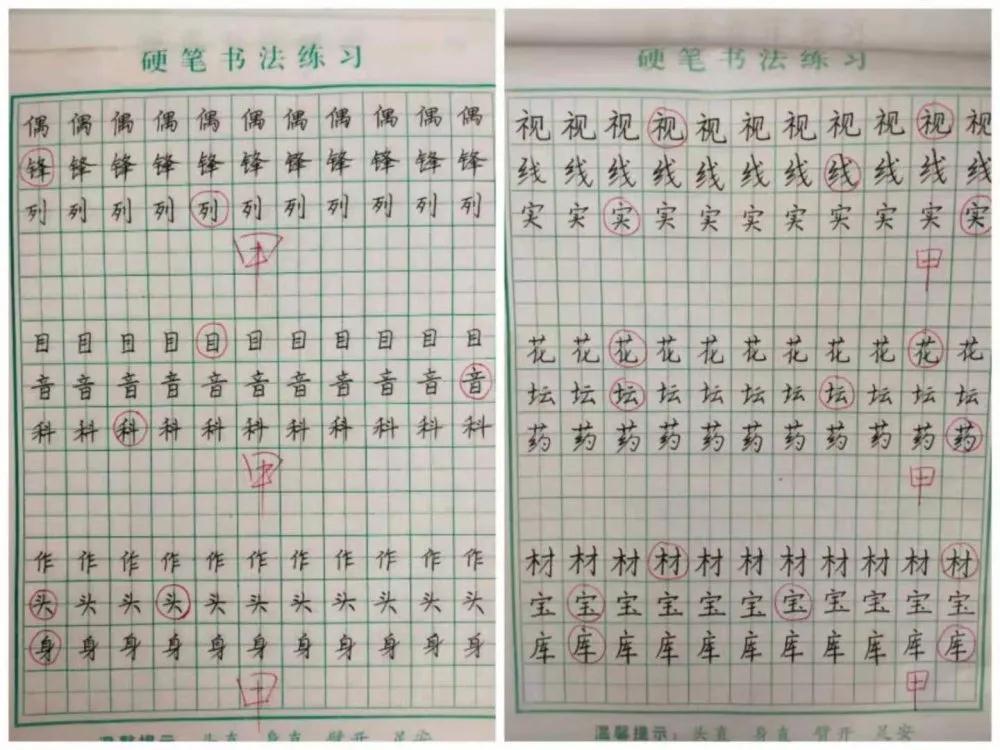 硬笔书法练习
偶偶偶偶偶偶偶偶偶偶偶
锋锋锋锋锋锋锋锋锋锋锋
列列列列列列列列列列列
目目目目目目目目目目目
音音音音音音音音音音音
科科科科科科科科科科科
作作作作作作作作作作作
头头头头头头头头头头头
身身身身身身身身身身身
温馨提示：头直 身直 臂开 足安
硬笔书法练习
视视视视视视视视视视视
线线线线线线线线线线线
实实实实实实实实实实实
甲
花花花花花花花花花花花
坛坛坛坛坛坛坛坛坛坛坛
药药药药药药药药药药药
甲
材材材材材材材材材材材
宝宝宝宝宝宝宝宝宝宝宝
库库库库库库库库库库库
甲
温馨提示：头直 身直 臂开 足安